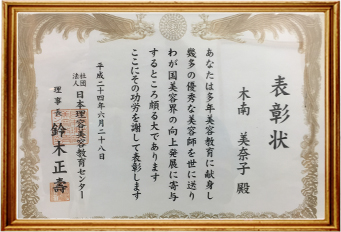 表彰状
木南 美奈子 殿
あなたは多年美容教育に献身し
幾多の優秀な美容師を世に送り
わが国美容界の向上発展に寄与
するところ頗る大であります
ここにその功労を謝して表彰します
平成二十四年六月二十八日
社団法人 日本理容美容教育センター
理事長 鈴木正壽